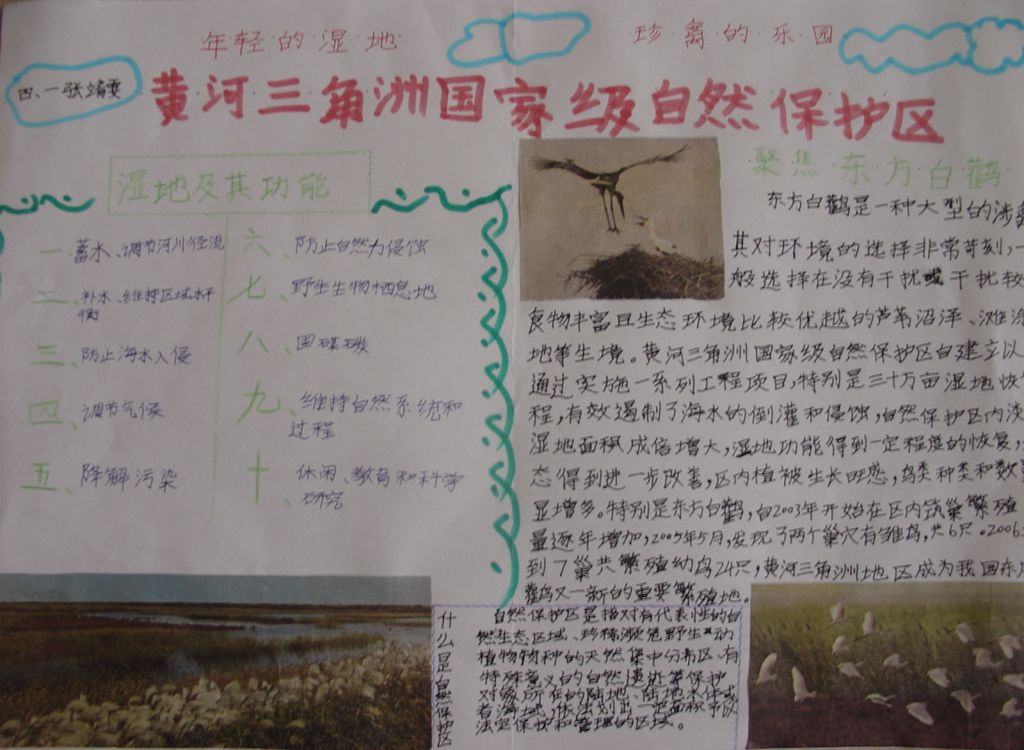 年轻的湿地
珍禽的乐园
四、一张靖雯
黄河三角洲国家级自然保护区
湿地及其功能
一、蓄水、调节河川径流
二、补水、维持区域水平
衡
三、防止海水入侵
四、调节气候
五、降解污染
六、防止自然力侵蚀
七、野生生物栖息地
八、固碳
九、维持自然系统和
过程
十、休闲、教育和科学
研究
聚焦东方白鹳
东方白鹳是一种大型的涉
其对环境的选择非常苛刻,一
般选择在没有干扰或干扰较
食物丰富且生态环境比较优越的芦苇沼泽、滩涂
地等生境。黄河三角洲国家级自然保护区自建立以
通过实施一系列工程项目,特别是三十万亩湿地恢
程,有效遏制了海水的倒灌和侵蚀,自然保护区内淡
湿地面积成倍增大,湿地功能得到一定程度的恢复,
态得到进一步改善,区内植被生长旺盛,鸟类种类和数
显增多。特别是东方白鹳,自2003年开始在区内筑巢繁殖
量逐年增加,2005年5月,发现了两个巢穴有雏鸟,共6只。2006
到7巢共繁殖幼鸟24只,黄河三角洲地区成为我国东
鹳又一新的重要繁殖地。
什么是自然保护区
自然保护区是指对有代表性的自
然生态区域、珍稀濒危野生动
植物物种的天然集中分布区、有
特殊意义的自然遗迹等保护
对象所在的陆地、陆地水体或
者海域,依法划出一定面积予以
法定保护和管理的区域。